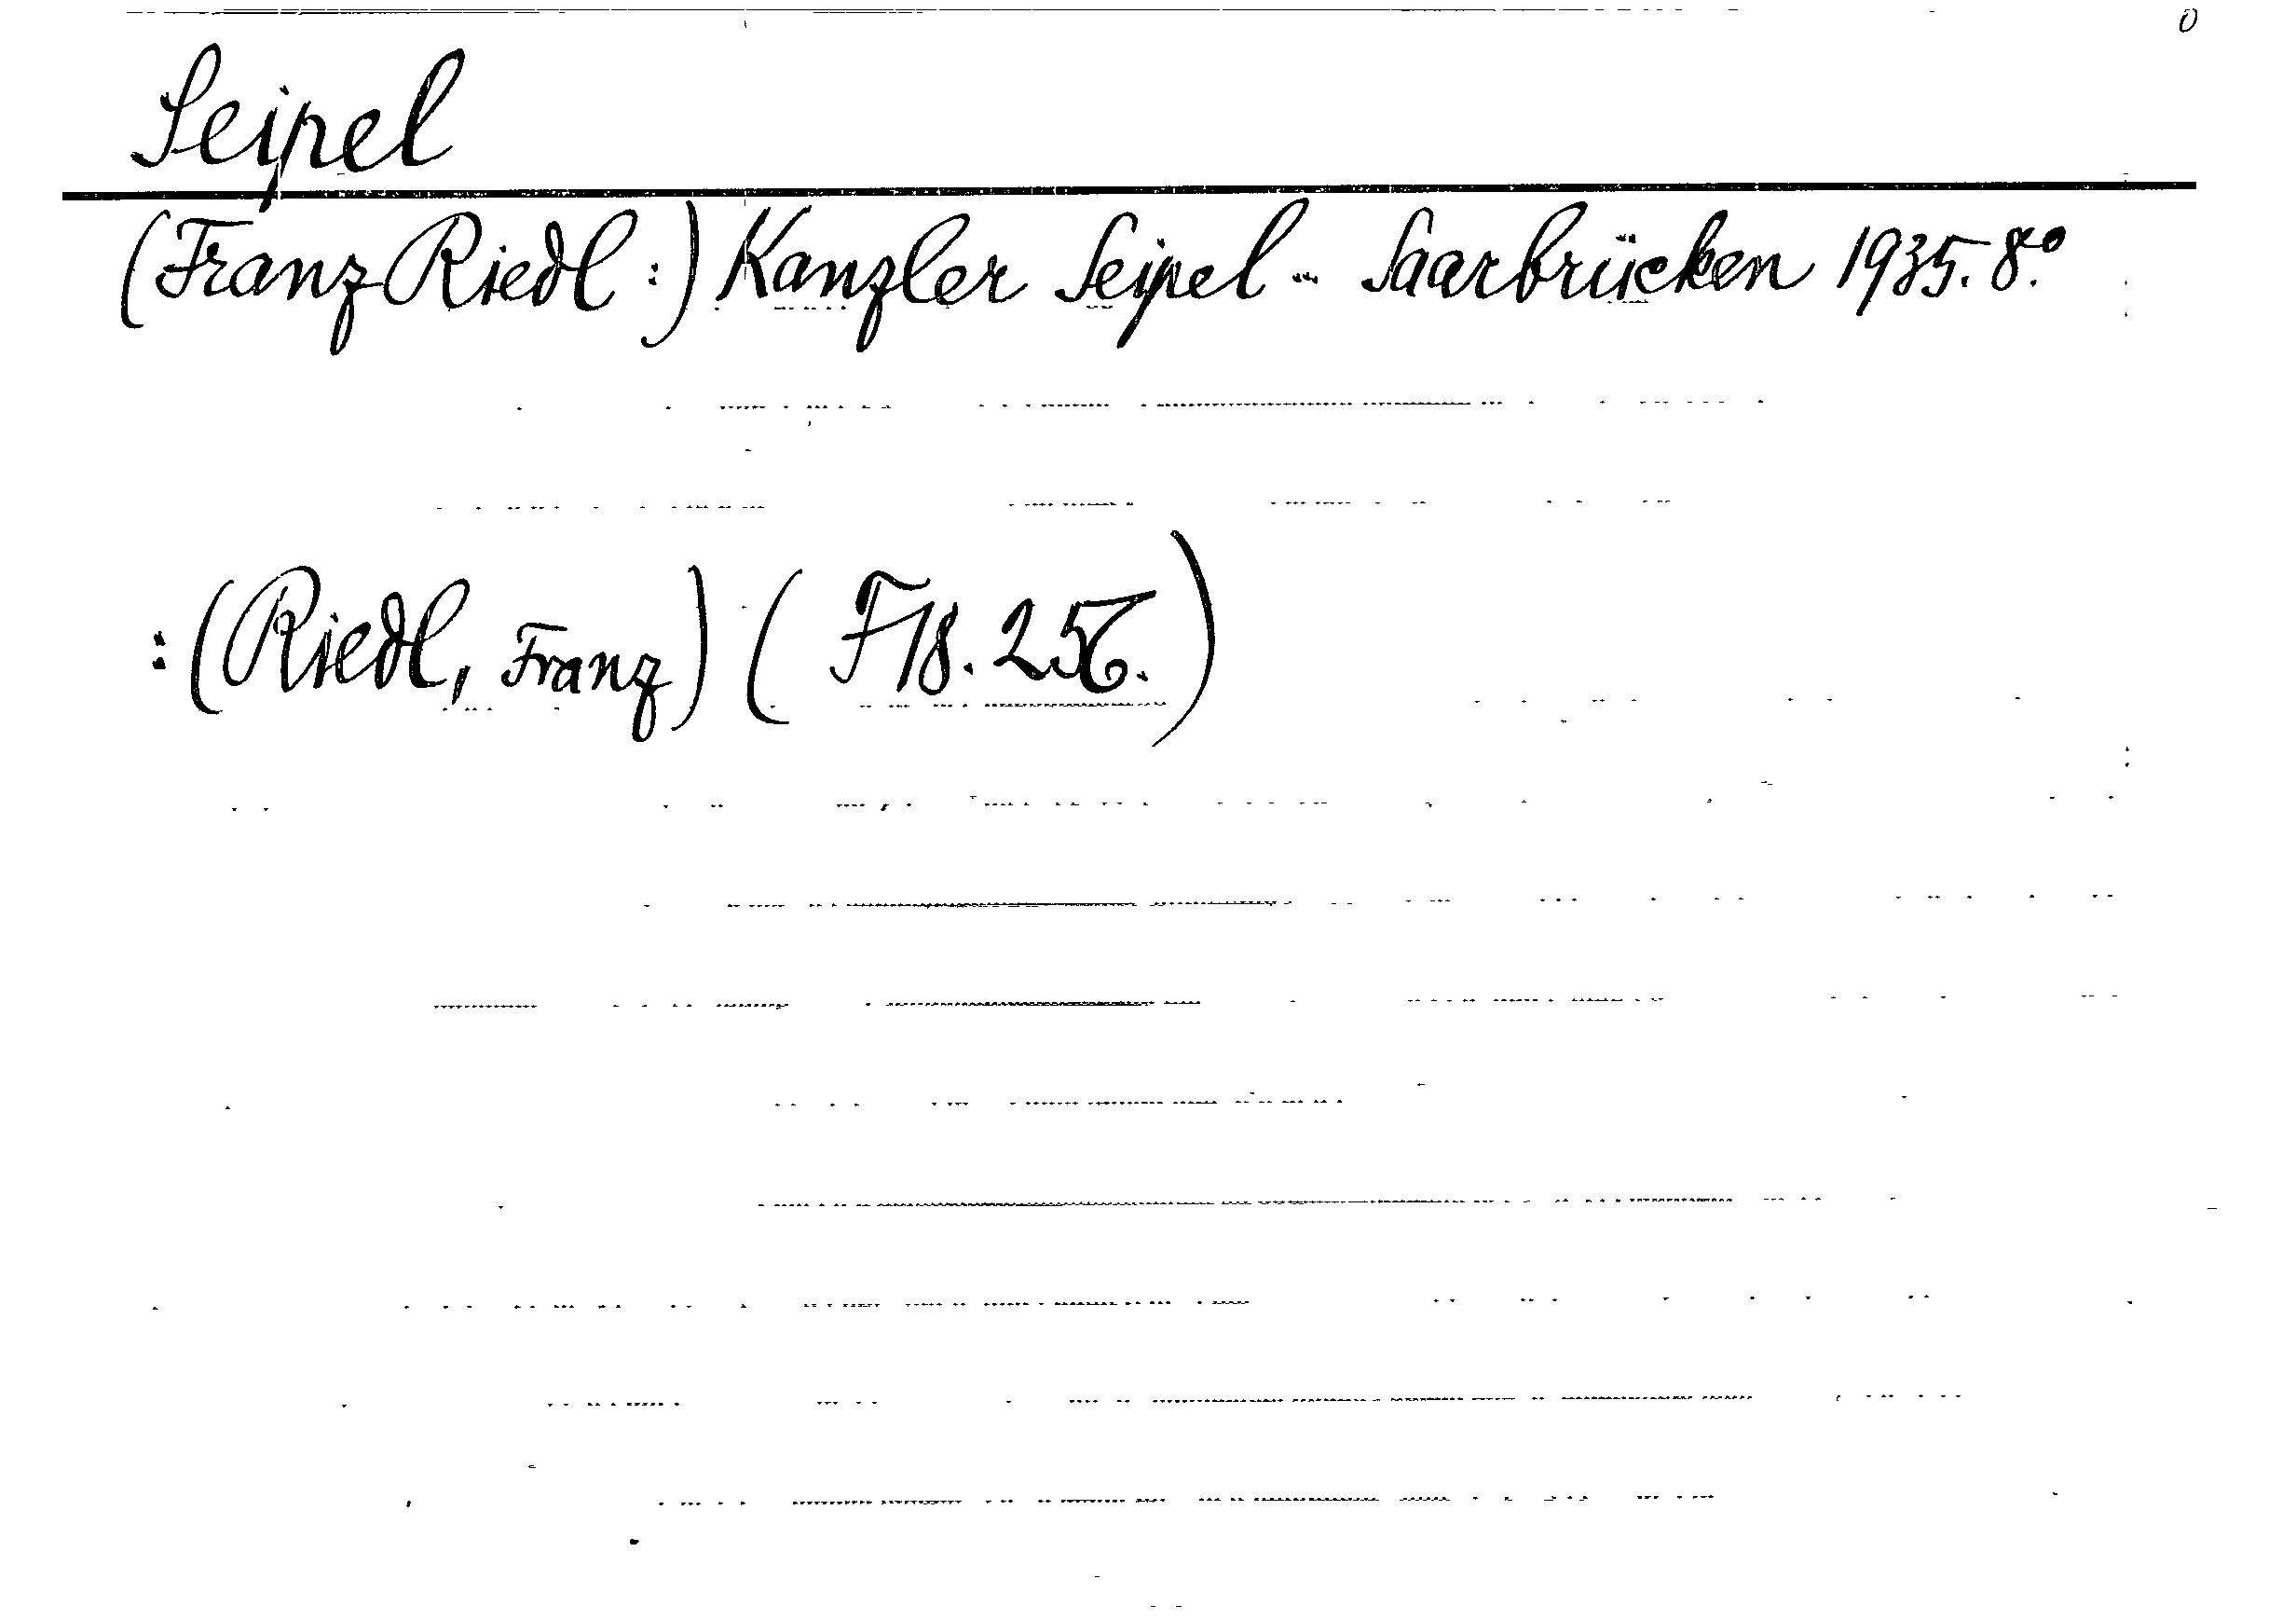 0
Seipel
(Franz Riedl:) Kanzler Seipel... Saarbrücken 1935. 8.°
:(Riedl, Franz) (F18. 256.)